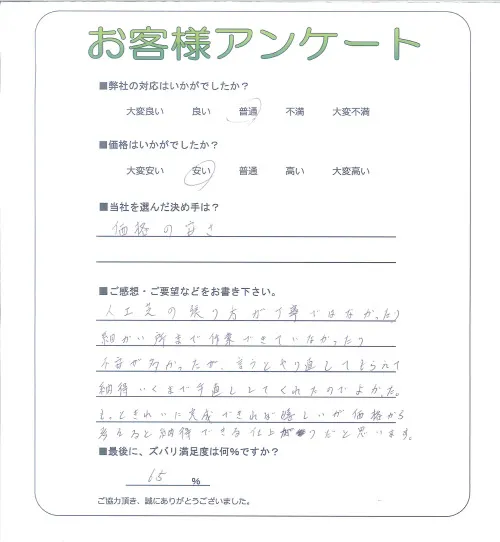 お客様アンケート
■弊社の対応はいかがでしたか？
大変良い 良い 普通 不満 大変不満
■価格はいかがでしたか？
大変安い 安い 普通 高い 大変高い
■当社を選んだ決め手は？
価格の安さ
■ご感想・ご要望などをお書き下さい。
人工芝の張り方が丁寧ではなかったり
細かい所まで作業できていなかったり
不満が多かったが、言うとやり直してもらえて
納得いくまで手直ししてくれたのでよかった。
もっときれいに完成できれば嬉しいが価格から
考えると納得できる仕上がりだと思います。
■最後に、ズバリ満足度は何%ですか？
65 %
ご協力頂き、誠にありがとうございました。